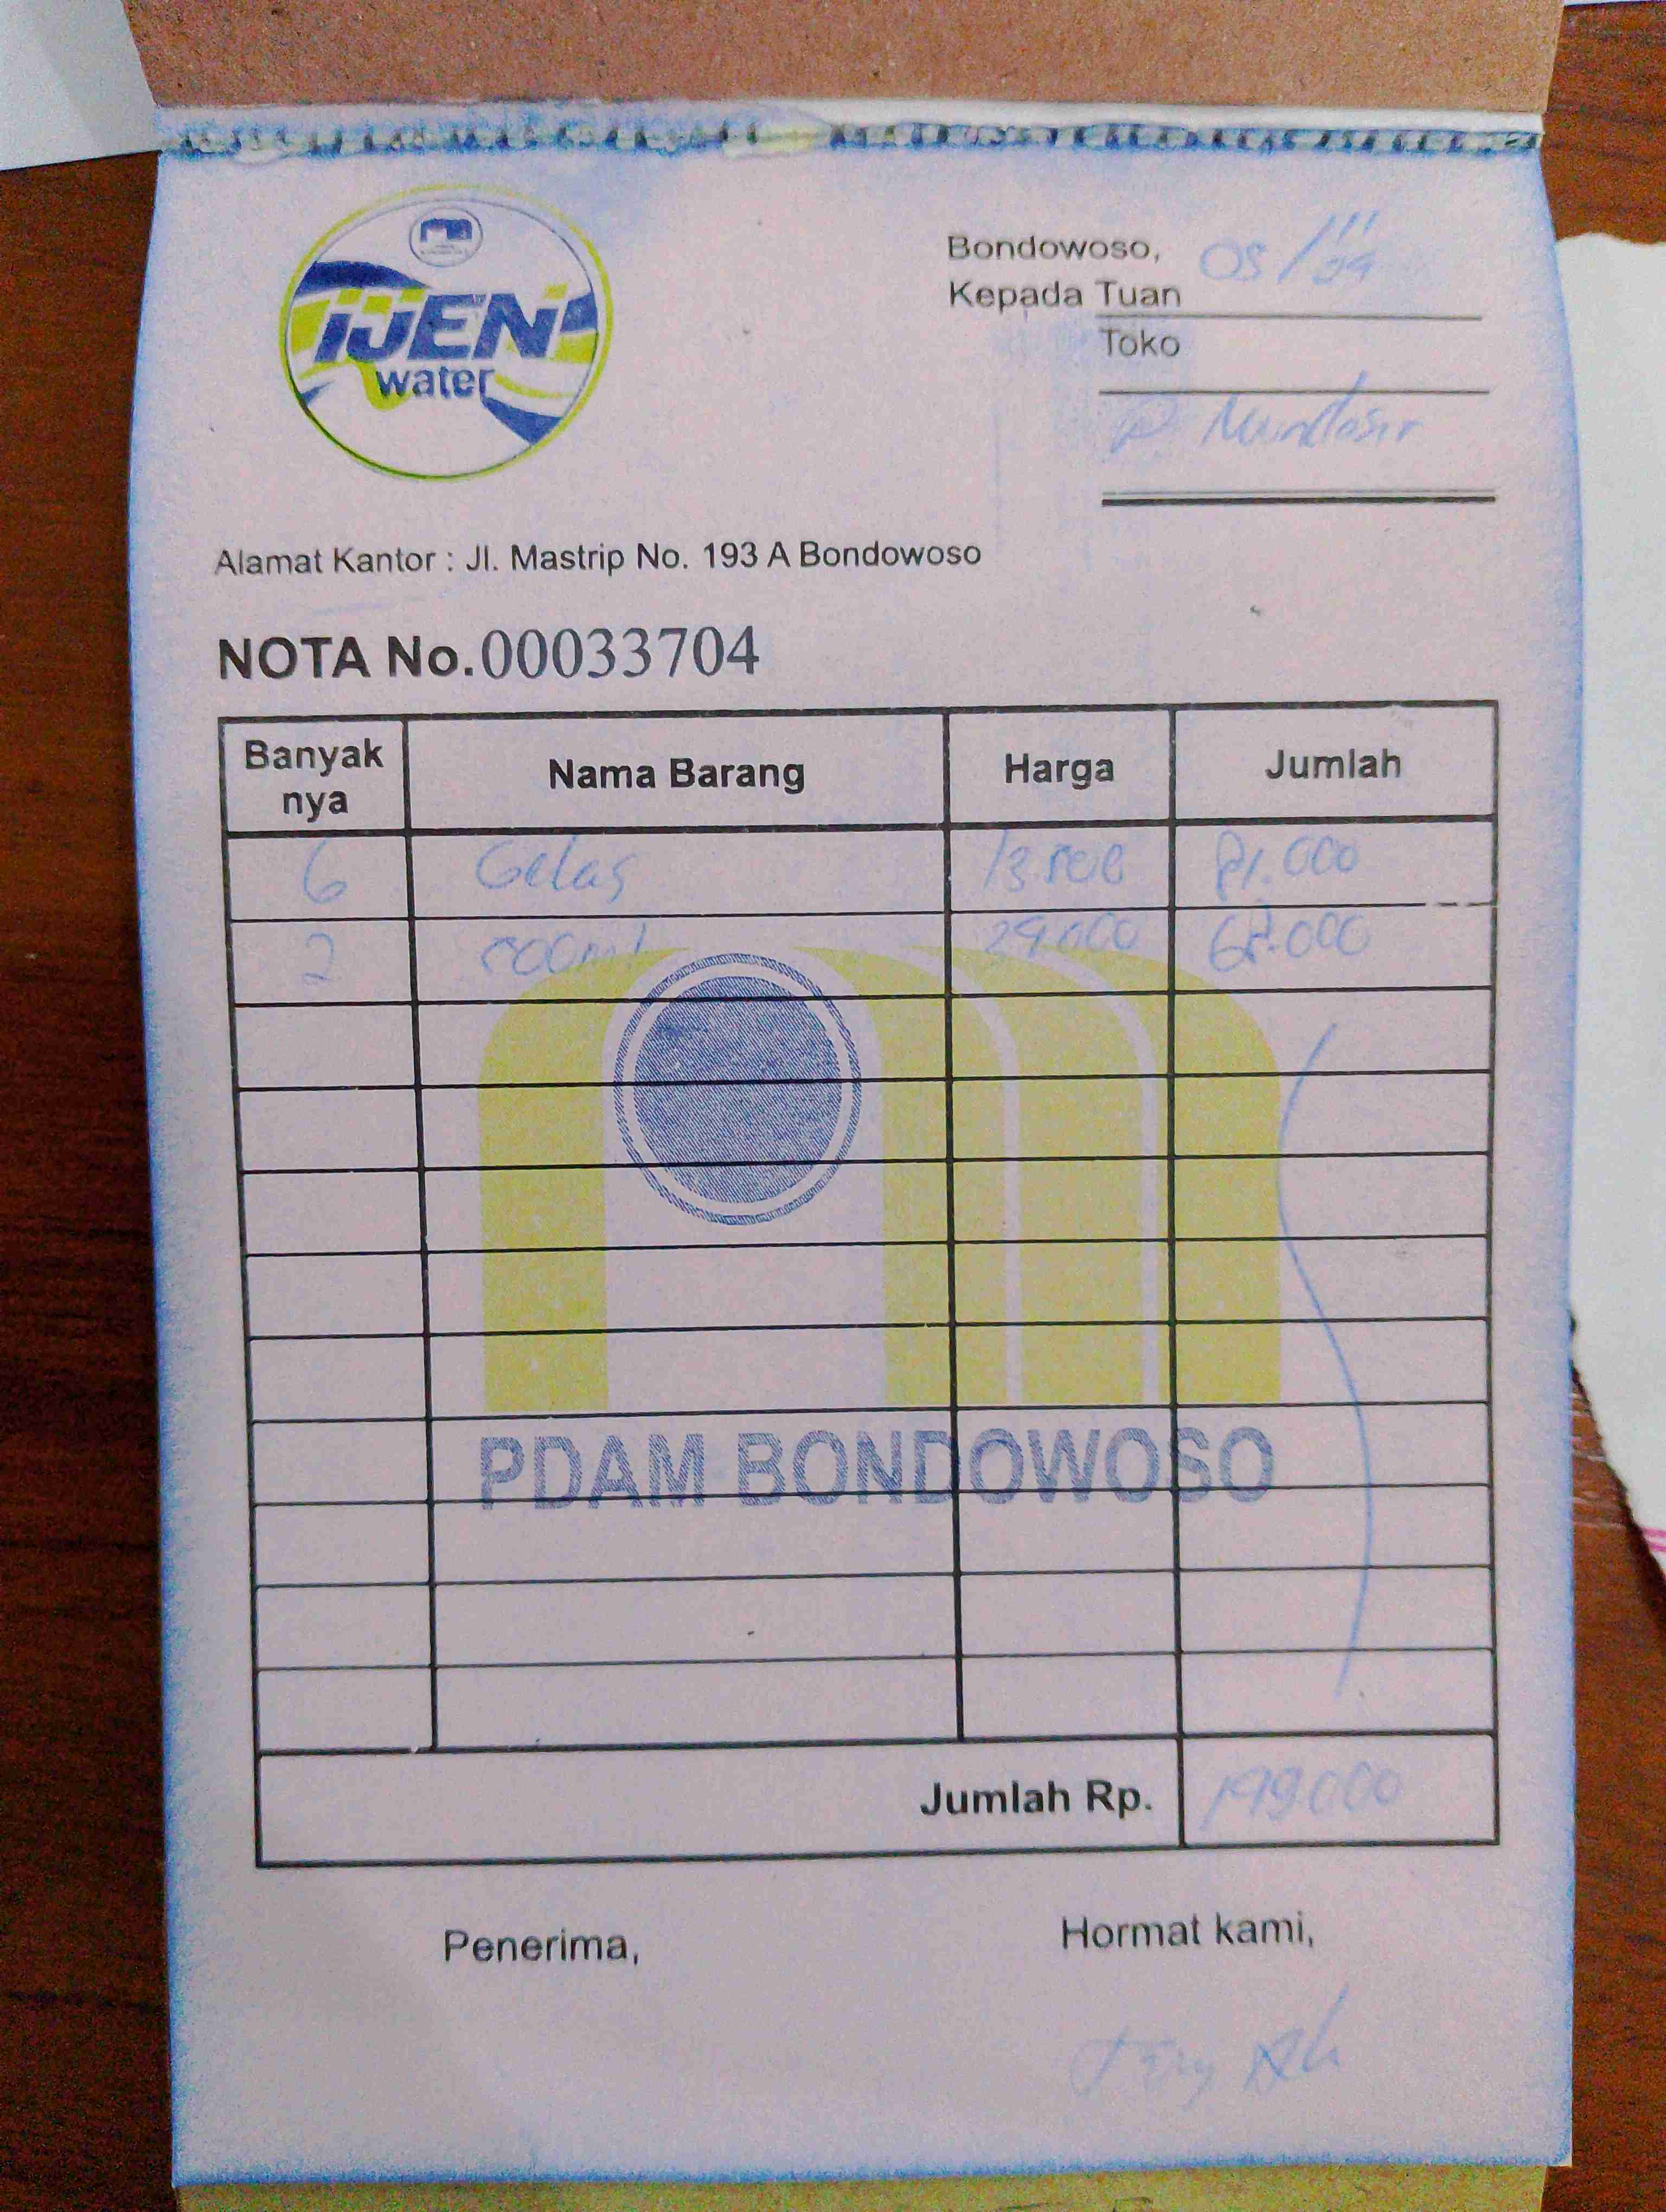 IJEN
water
Bondowoso, 05/11
Kepada Tuan
Toko
P. Muntasir
Alamat Kantor : Jl. Mastrip No. 193 A Bondowoso
NOTA No. 00033704
Banyak nya Nama Barang Harga Jumlah
6 Gelas 13.500 81.000
2 600ml 34.000 68.000
PDAM BONDOWOSO
Jumlah Rp. 149.000
Penerima, Hormat kami,